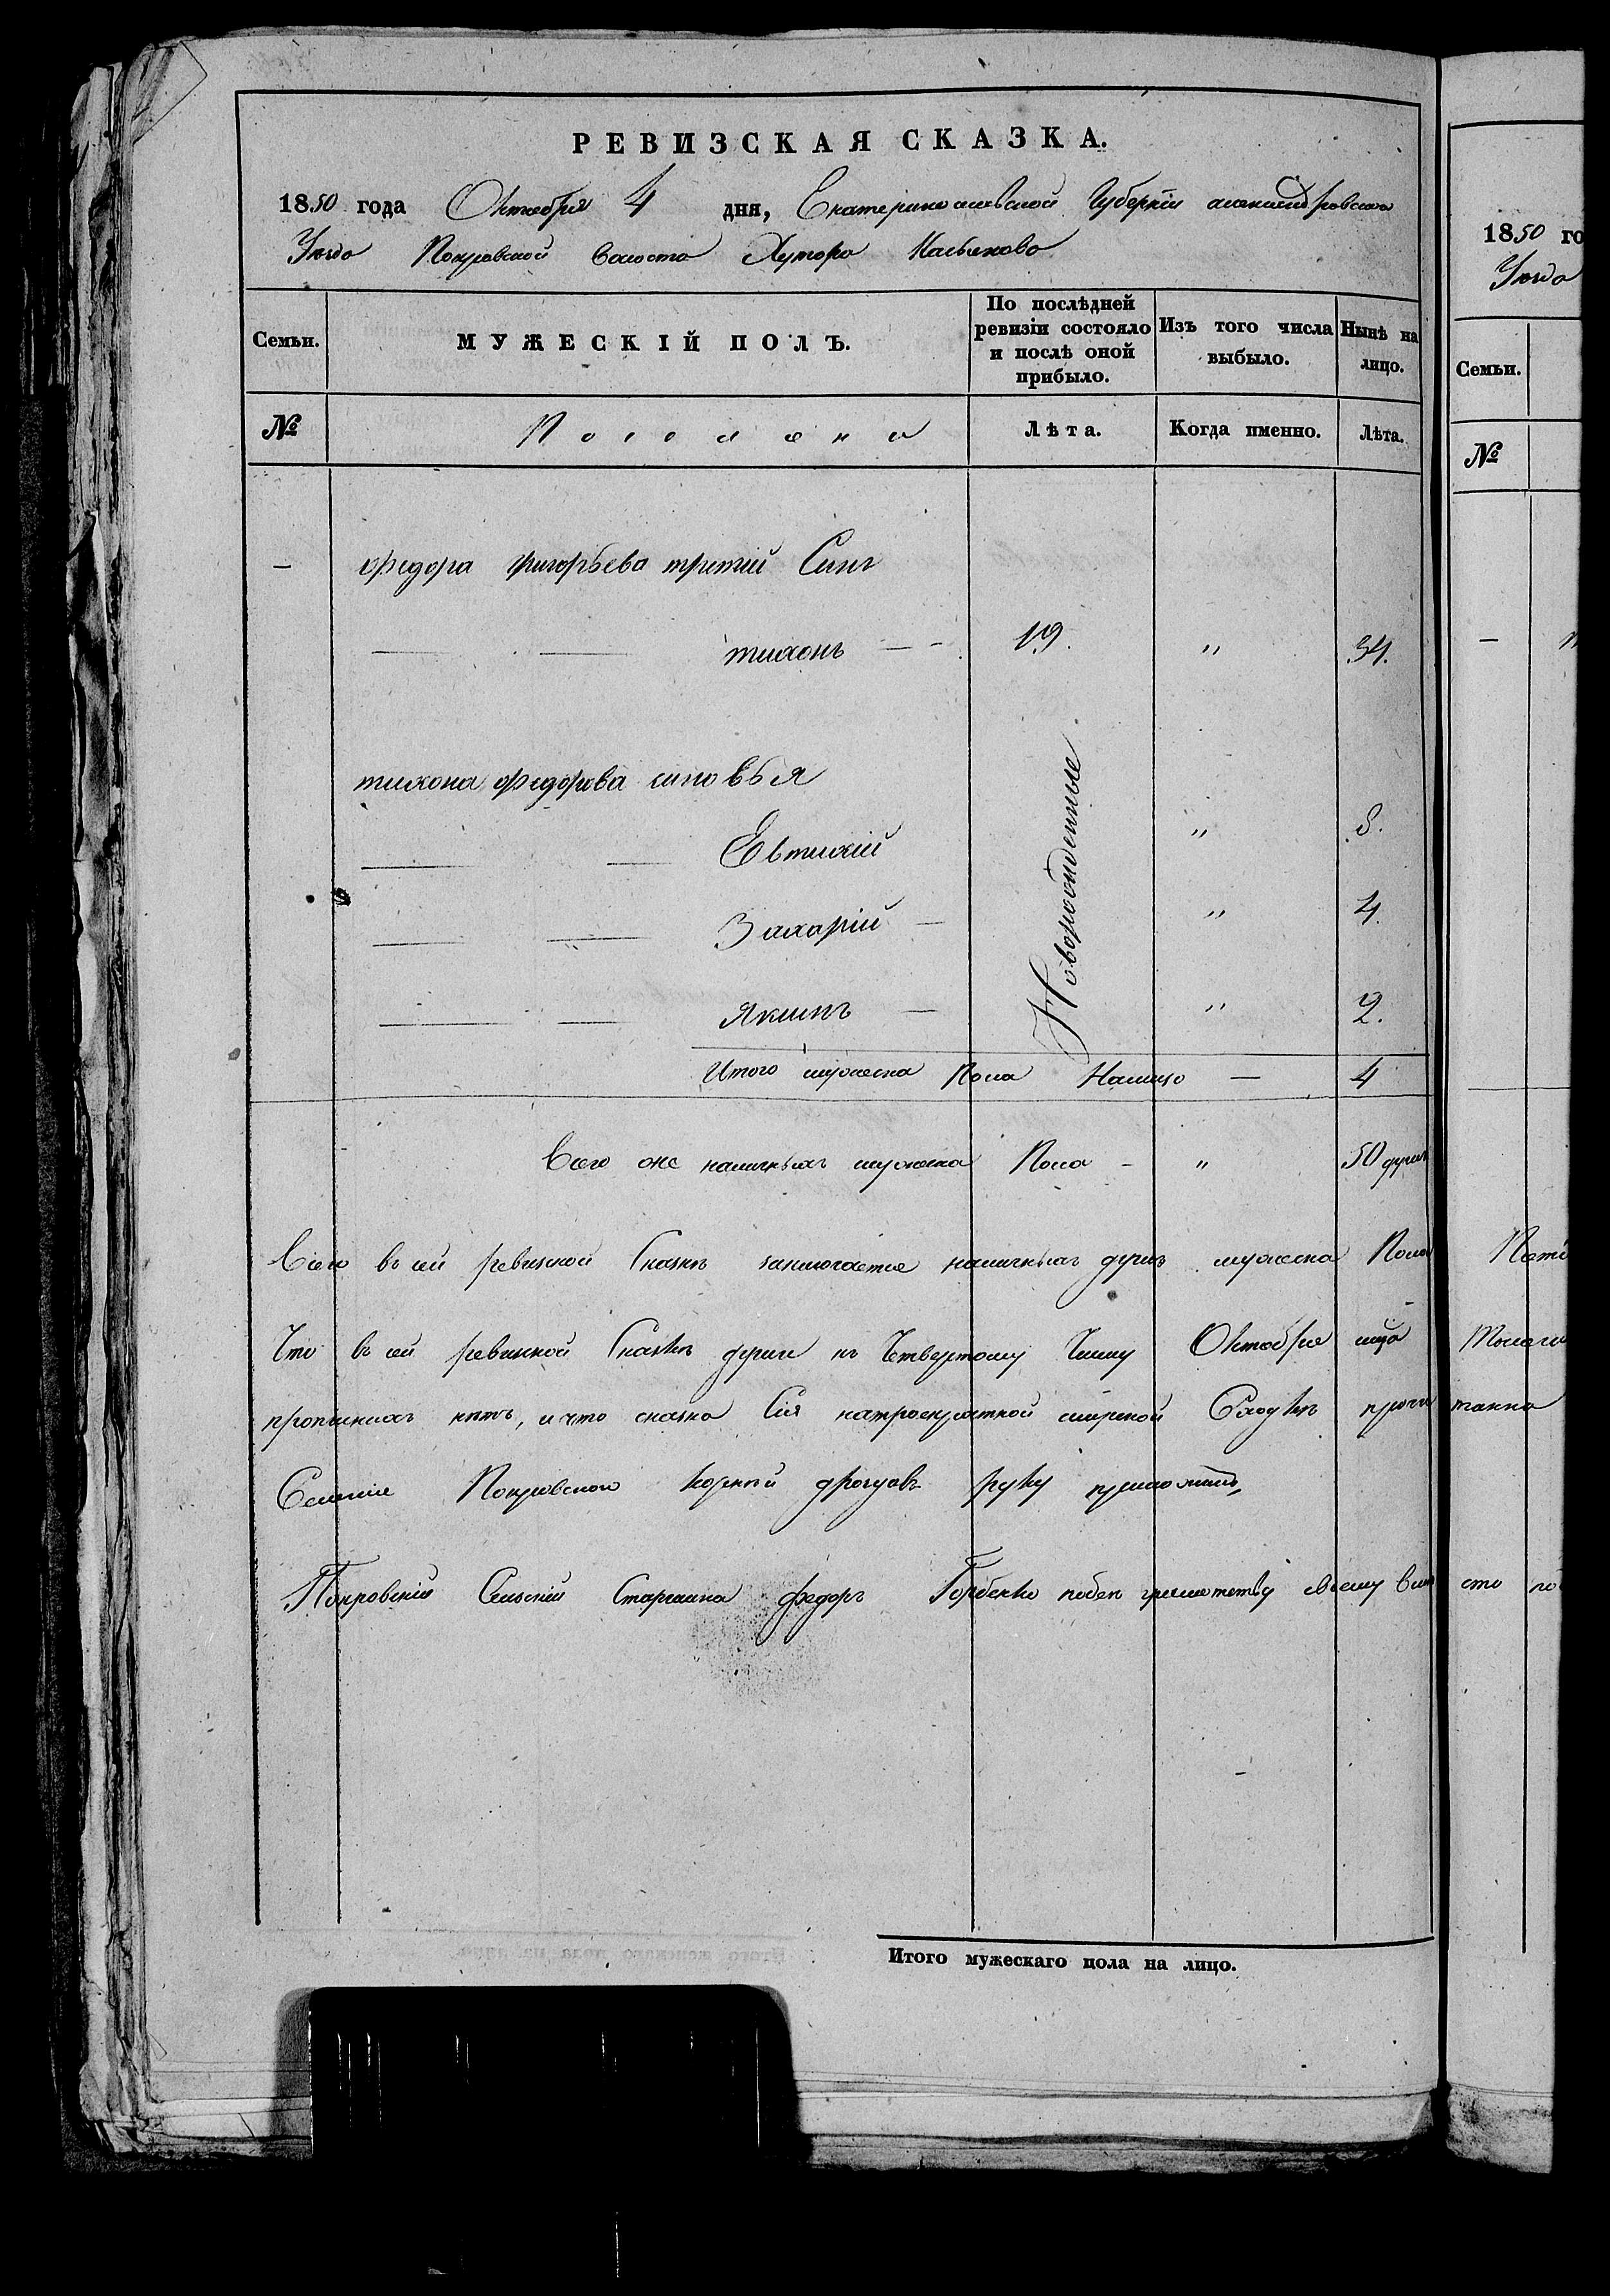 РЕВИЗСКАЯ СКАЗКА.
1850 года Октября 4 дня, Екатеринославской Губерніи александровскаго
Уезда Покровской Волости Хутора Касьянова
Семьи. МУЖЕСКІЙ ПОЛЪ. По послѣдней ревизіи состояло и послѣ оной прибыло. Изъ того числа выбыло. Нынѣ на лицо.
№ Поселяне Лѣта. Когда именно. Лѣта.
— федора григорьева третій Синъ
тихонъ — 19. " 34.
тихона федорова синовья
Евтихій Новорожденные " 8.
Захарій — " 4.
Якимъ — " 2.
Итого мужеска Пола Налицо — 4
Всего оне наличныхъ мужеска Пола — " 50 душъ
Всего въ сей ревизской Сказкѣ заключается наличныхъ душъ мужеска Пола
Что въ сей ревизкой Сказкѣ души къ Четвертому Числу Октября
нѣтъ, и что сказка Сія мірской Сходкѣ
Селенія Покровского руку приложилъ,
Покровскій Сельскій Старшина федоръ Горбенко
Итого мужескаго пола на лицо.
1850 го
Уезда
Семьи.
№